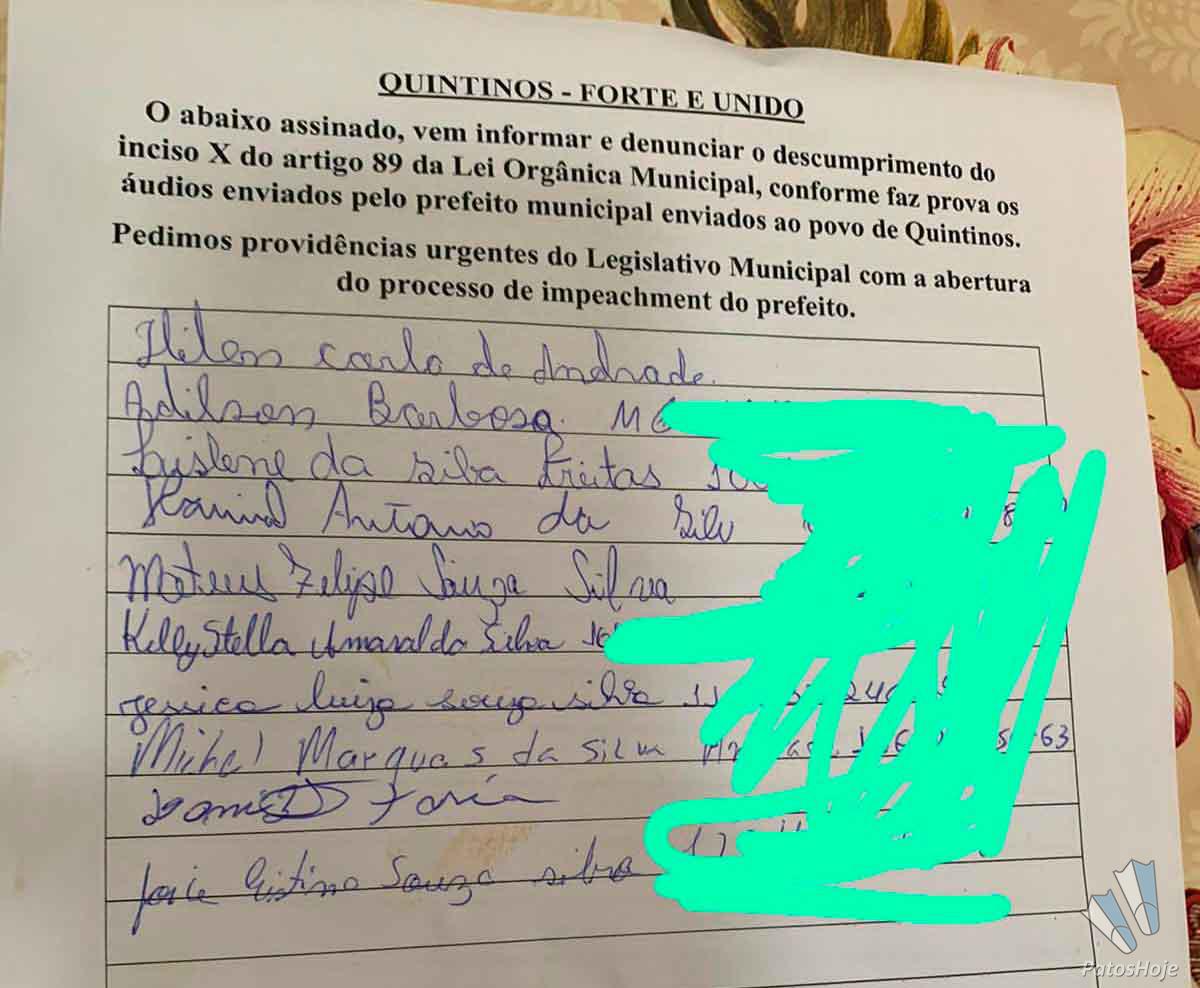 QUINTINOS - FORTE E UNIDO
O abaixo assinado, vem informar e denunciar o descumprimento do
inciso X do artigo 89 da Lei Orgânica Municipal, conforme faz prova os
áudios enviados pelo prefeito municipal enviados ao povo de Quintinos.
Pedimos providências urgentes do Legislativo Municipal com a abertura
do processo de impeachment do prefeito.
Carlo de Andrade.
Adilson Barbosa. M
da Silva Freitas
Antonio da Silv
Mateus Felipe Souza Silva
Kelly Stella Amaral da Silva
Jessica Luiza Souza Silva
Michel Marques da Silva 63
Faria
Souza Silva
PatosHoje